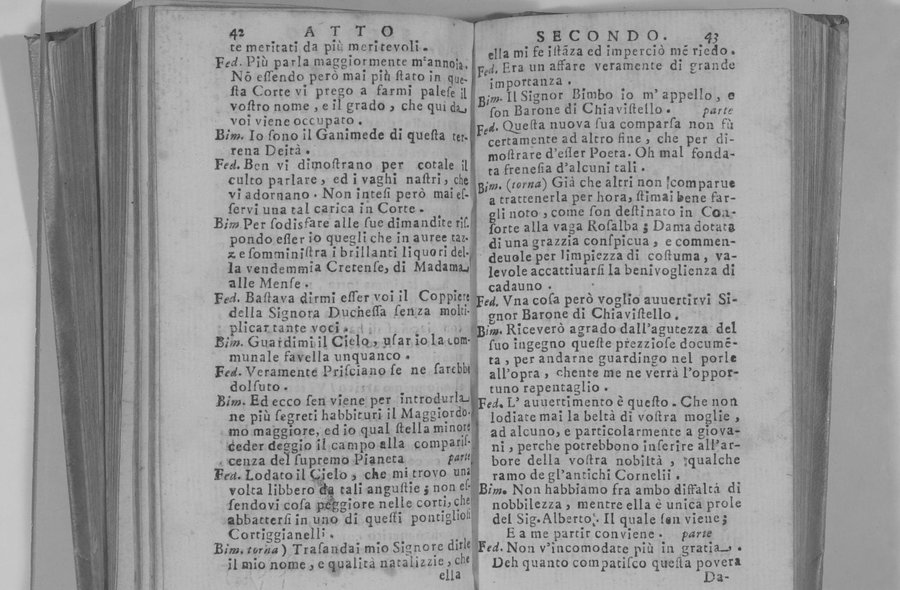 42 ATTO
te meritati da più meritevoli.
Fed. Più parla maggiormente m'annoia.
Nõ eſſendo però mai più ſtato in que-
ſta Corte vi prego a farmi paleſe il
voſtro nome, e il grado, che qui da
voi viene occupato.
Bim. Io ſono il Ganimede di queſta ter-
rena Deità.
Fed. Ben vi dimoſtrano per cotale il
culto parlare, ed i vaghi naſtri, che
vi adornano. Non inteſi però mai eſ-
ſervi una tal carica in Corte.
Bim Per ſodisfare alle ſue dimandite riſ-
pondo eſſer io quegli che in auree taz-
z e ſomminiſtra i brillanti liquori del-
la vendemmia Cretenſe, di Madama
alle Menſe.
Fed. Baſtava dirmi eſſer voi il Coppiere
della Signora Ducheſſa ſenza molti-
plicar tante voci.
Bim. Guardimi il Cielo, uſar io la com-
munale favella unquanco.
Fed. Veramente Priſciano ſe ne ſarebbe
dolſuto.
Bim. Ed ecco ſen viene per introdurla
ne più ſegreti habbituri il Maggiordo-
mo maggiore, ed io qual ſtella minore
ceder deggio il campo alla compariſ-
cenza del ſupremo Pianeta parte
Fed. Lodato il Cielo, che mi trovo una
volta libbero da tali anguſtie; non eſ-
ſendovi coſa peggiore nelle corti, che
abbatterſi in uno di queſti pontiglioſi
Cortiggianelli.
Bim. torna) Traſandai mio Signore dirle
il mio nome, e qualità natalizzie, che
ella
SECONDO. 43
ella mi fe iſtãza ed imperciò mé riedo.
Fed. Era un affare veramente di grande
importanza.
Bim. Il Signor Bimbo io m' appello, e
ſon Barone di Chiaviſtello. parte
Fed. Queſta nuova ſua comparſa non fù
certamente ad altro fine, che per di-
moſtrare d'eſſer Poeta. Oh mal fonda-
ta freneſia d'alcuni tali.
Bim. (torna) Già che altri non comparue
a trattenerla per hora, ſtimai bene far-
gli noto, come ſon deſtinato in Con-
ſorte alla vaga Roſalba; Dama dotata
di una grazzia conſpicua, e commen-
deuole per limpiezza di coſtuma, va-
levole accattiuarſi la benivoglienza di
cadauno.
Fed. Vna coſa però voglio auuertirvi Si-
gnor Barone di Chiaviſtello.
Bim. Riceverò agrado dall'agutezza del
ſuo ingegno queſte prezzioſe documẽ-
ta, per andarne guardingo nel porle
all'opra, chente me ne verrà l'oppor-
tuno repentaglio.
Fed. L' auuertimento è queſto. Che non
lodiate mai la beltà di voſtra moglie,
ad alcuno, e particolarmente a giova-
ni, perche potrebbono inſerire all'ar-
bore della voſtra nobiltà, qualche
ramo de gl'antichi Cornelii.
Bim. Non habbiamo fra ambo diffaltà di
nobbilezza, mentre ella è unica prole
del Sig. Alberto. Il quale ſen viene;
E a me partir conviene. parte
Fed. Non v'incomodate più in gratia.
Deh quanto compatiſco queſta povera
Da-